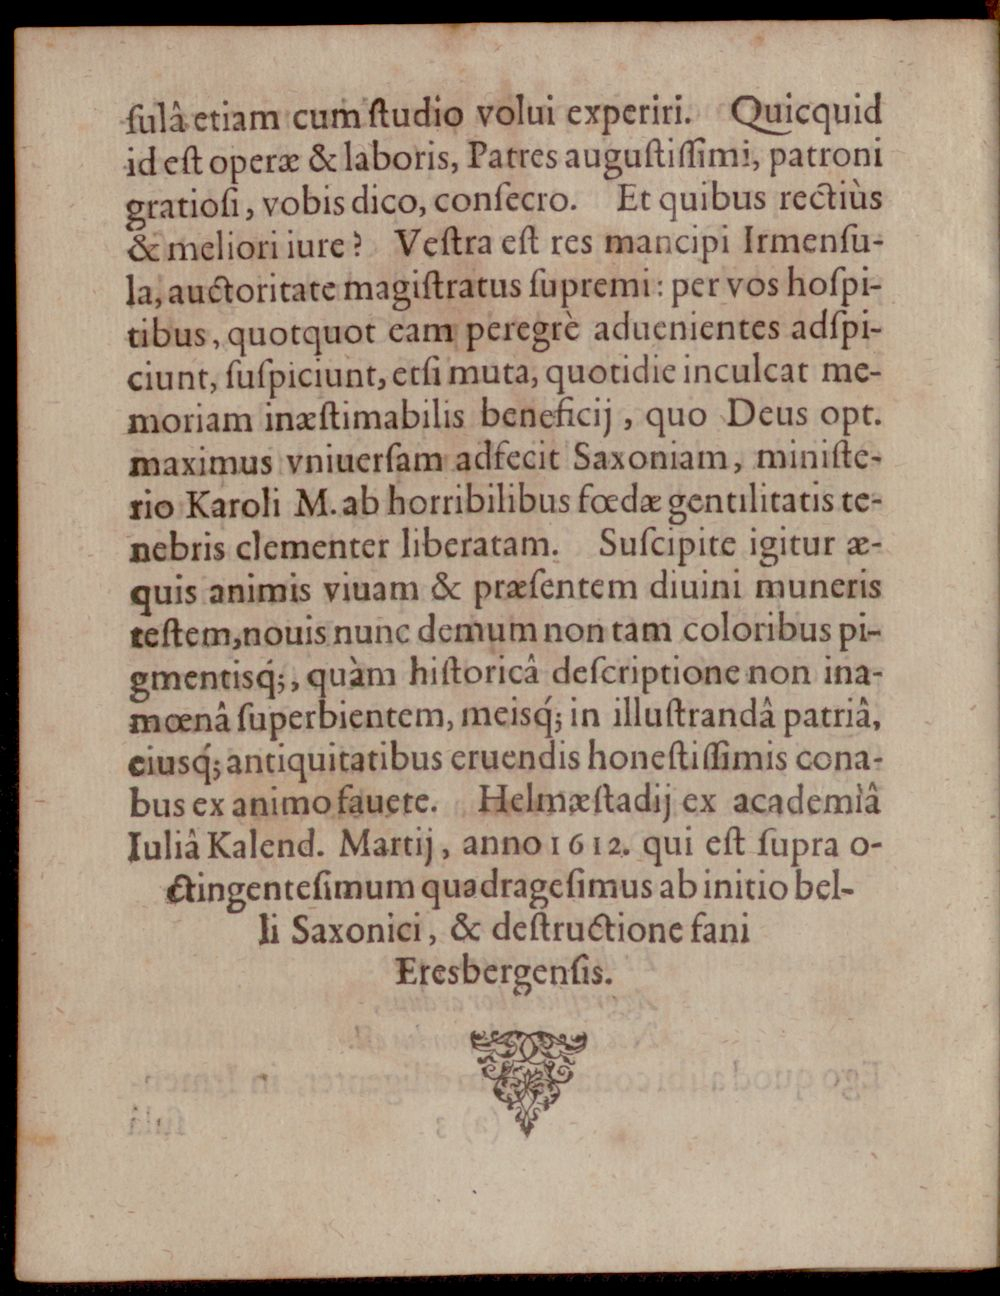 ſulâ etiam cum ſtudio volui experiri. Quicquid
id eſt operæ & laboris, Patres auguſtiſſimi, patroni
gratioſi, vobis dico, conſecro. Et quibus rectiùs
& meliori iure? Veſtra eſt res mancipi Irmenſu-
la, auctoritate magiſtratus ſupremi: per vos hoſpi-
tibus, quotquot eam peregrè aduenientes adſpi-
ciunt, ſuſpiciunt, etſi muta, quotidie inculcat me-
moriam inæſtimabilis beneficij, quo Deus opt.
maximus vniuerſam adfecit Saxoniam, miniſte-
rio Karoli M. ab horribilibus fœdæ gentilitatis te-
nebris clementer liberatam. Suſcipite igitur æ-
quis animis viuam & præſentem diuini muneris
teſtem, nouis nunc demum non tam coloribus pi-
gmentisq́;, quàm hiſtoricâ deſcriptione non ina-
mœnâ ſuperbientem, meisq́; in illuſtrandâ patriâ,
eiusq́; antiquitatibus eruendis honeſtiſſimis cona-
bus ex animo fauete. Helmæſtadij ex academiâ
Iuliâ Kalend. Martij, anno 1612. qui eſt ſupra o-
ctingenteſimum quadrageſimus ab initio bel-
li Saxonici, & deſtructione fani
Eresbergenſis.